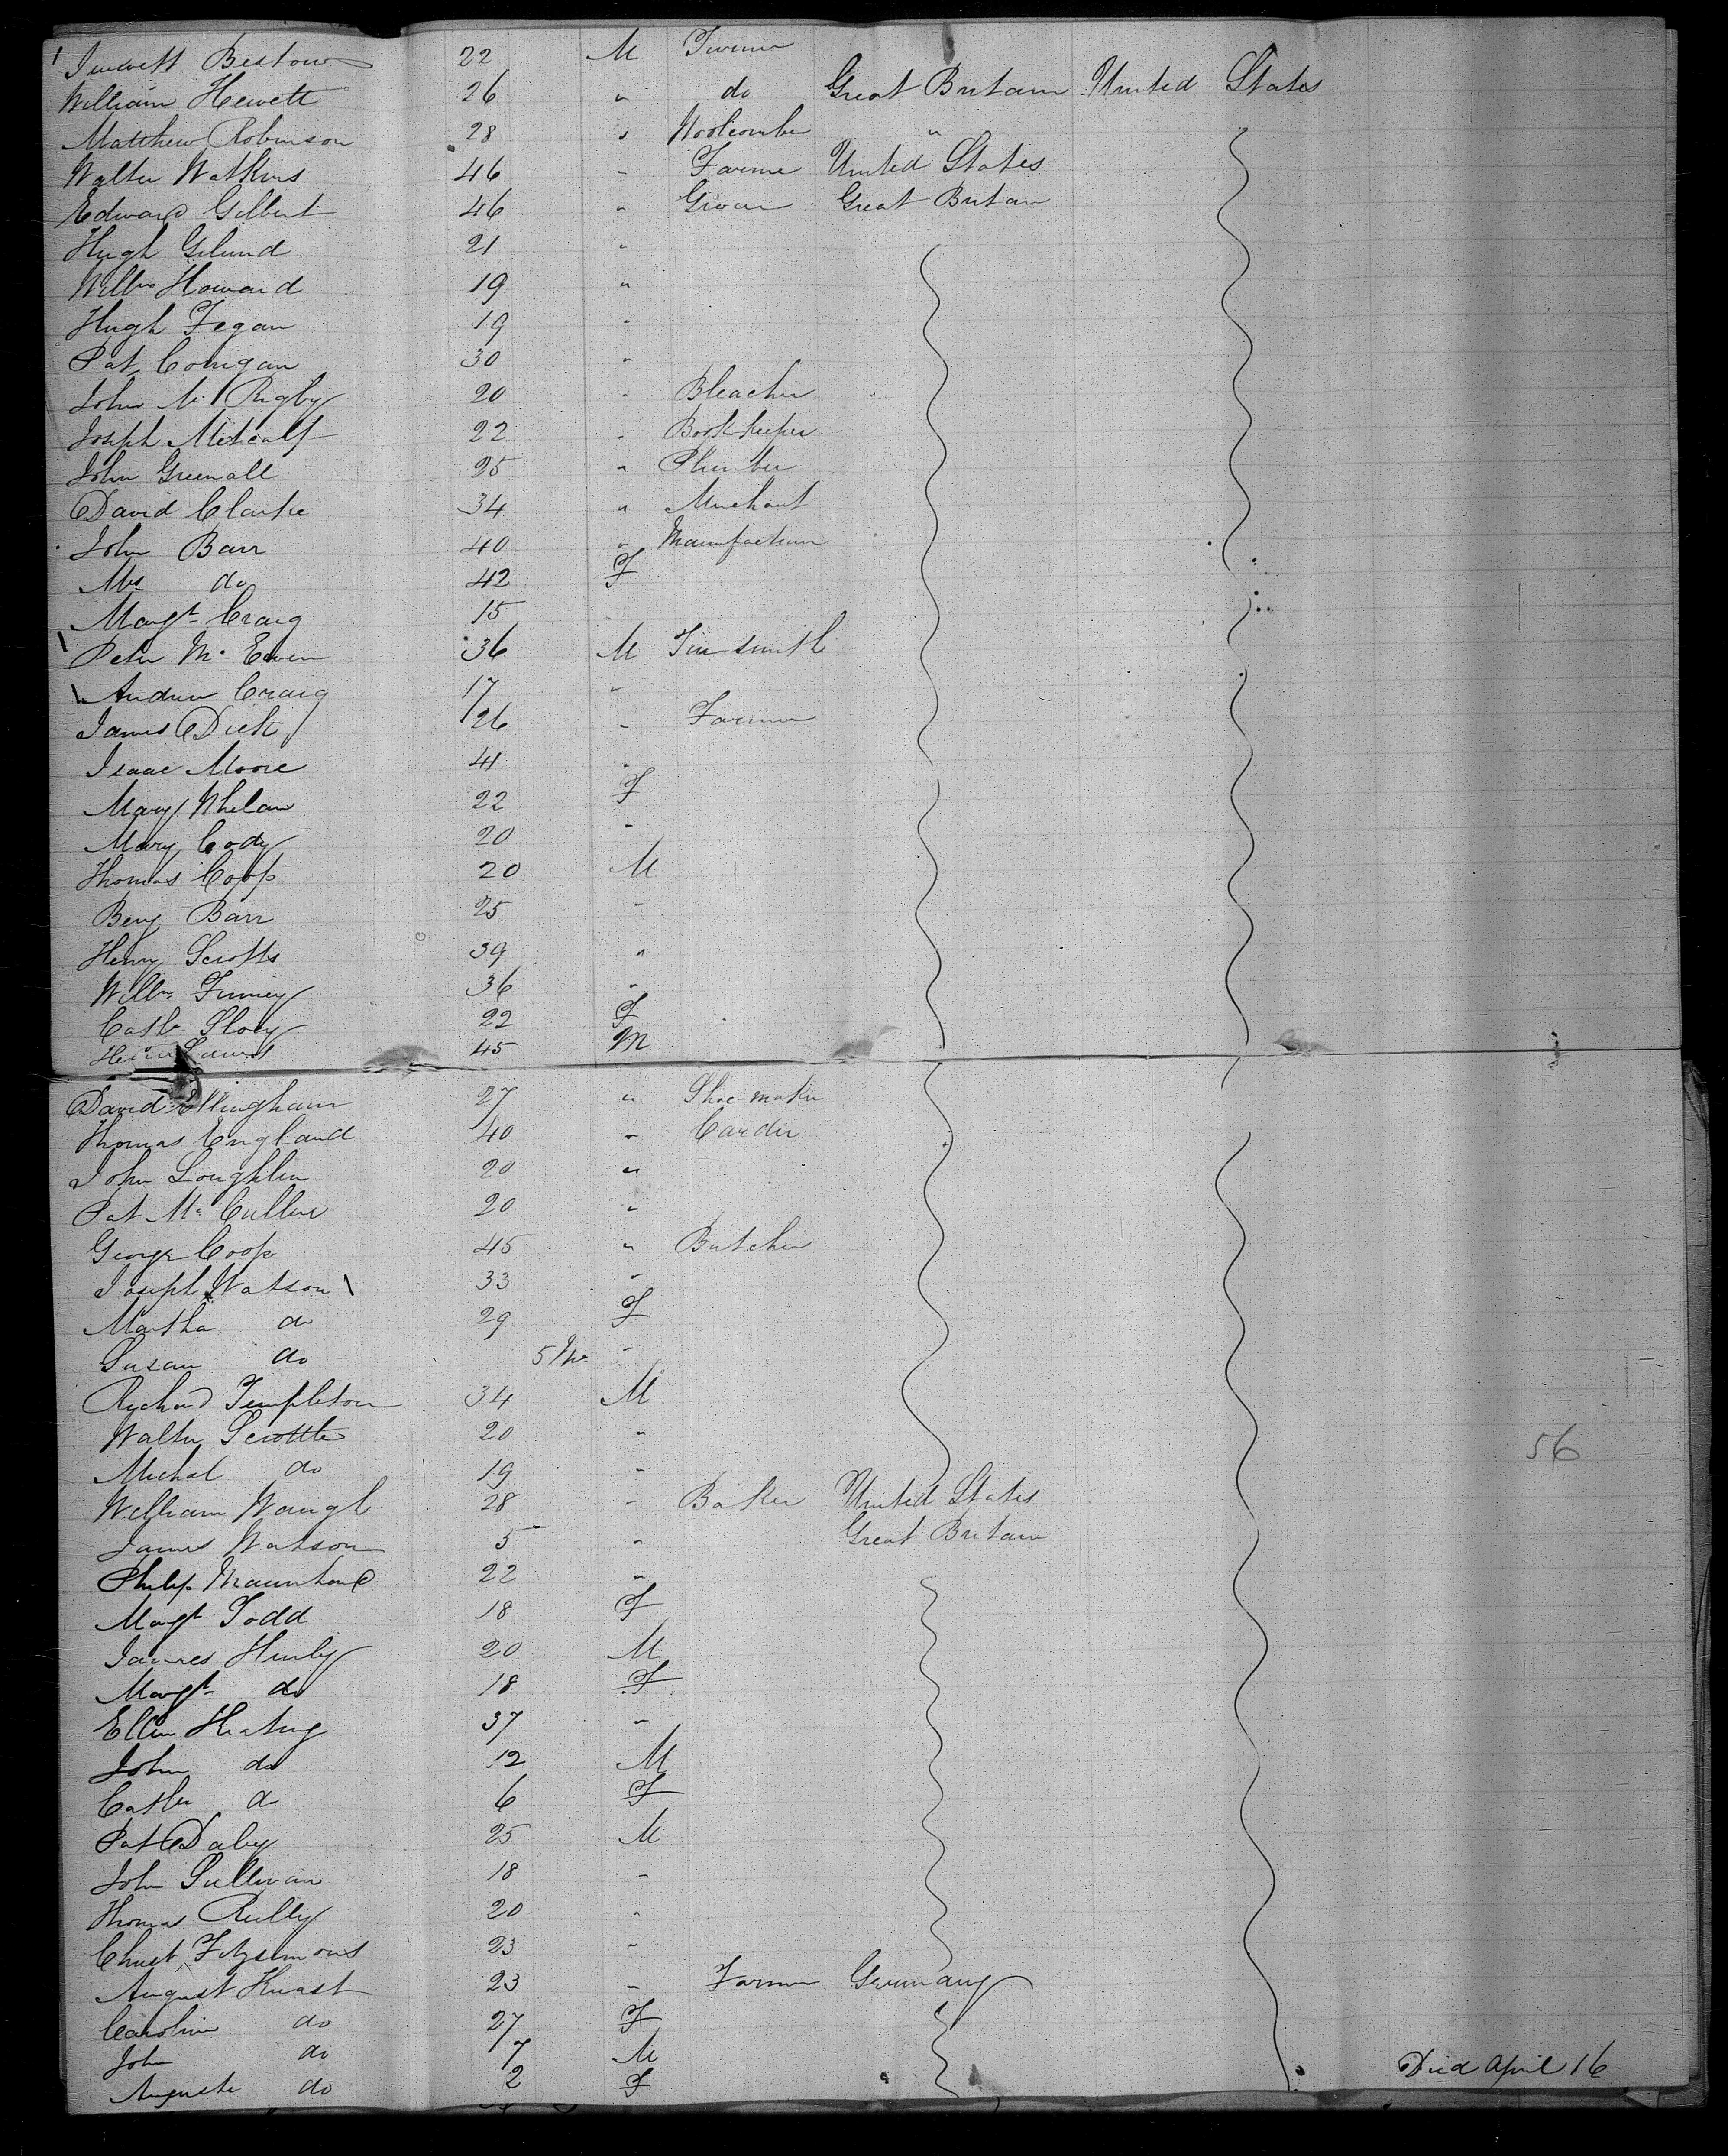 Bestow 22 M
William Hewett 26 " do Great Britain United States
Matthew Robinson 28 " Woolcomber "
Walter Watkins 46 " Farmer United States
Edward Gilbert 46 " Grocer Great Britain
Hugh 21 "
Willm Howard 19 "
Hugh Fegan 19 "
Pat Corrigan 30 "
John M. Rigby 20 " Bleacher
Joseph Metcalf 22 " Bookkeeper
John Greenall 25 " Plumber
David Clarke 34 " Merchant
John Barr 40 " Manufacturer
Mrs do 42 F
Margt Craig 15
Peter Mc Ewen 36 M Tinsmith
Andrew Craig 17 "
James Dick 26 " Farmer
Isaac Moore 41 "
Mary Whelan 22 F
Mary Cody 20 "
Thomas Coop 20 M
Benj Barr 25 "
Henry Scotts 39 "
Willm Finney 36 "
Cathr 22 F
45 M
David Ellingham 27 " Shoe maker
Thomas England 40 " Carder
John Loughlin 20 "
Pat Mc Cullen 20 "
George Coop 45 " Butcher
Joseph Watson 33 "
Martha do 29 F
Susan do 5 Mo "
Rychard Templeton 34 M
Walter 20 "
Michal do 19 "
William Waugh 28 " Baker United States
James Watson 5 " Great Britain
Philip 22 "
Margt Todd 18 F
James Hurly 20 M
Margt do 18 F
Ellen 37 "
John do 12 M
Cathr do 6 F
Pat Daly 25 M
John Sullivan 18 "
Thomas Reilly 20 "
Christ. Fitzsimons 23 "
August 23 " Farmer Germany
Caroline do 27 F
John do 7 M
Auguste do 2 F Died April 16
56